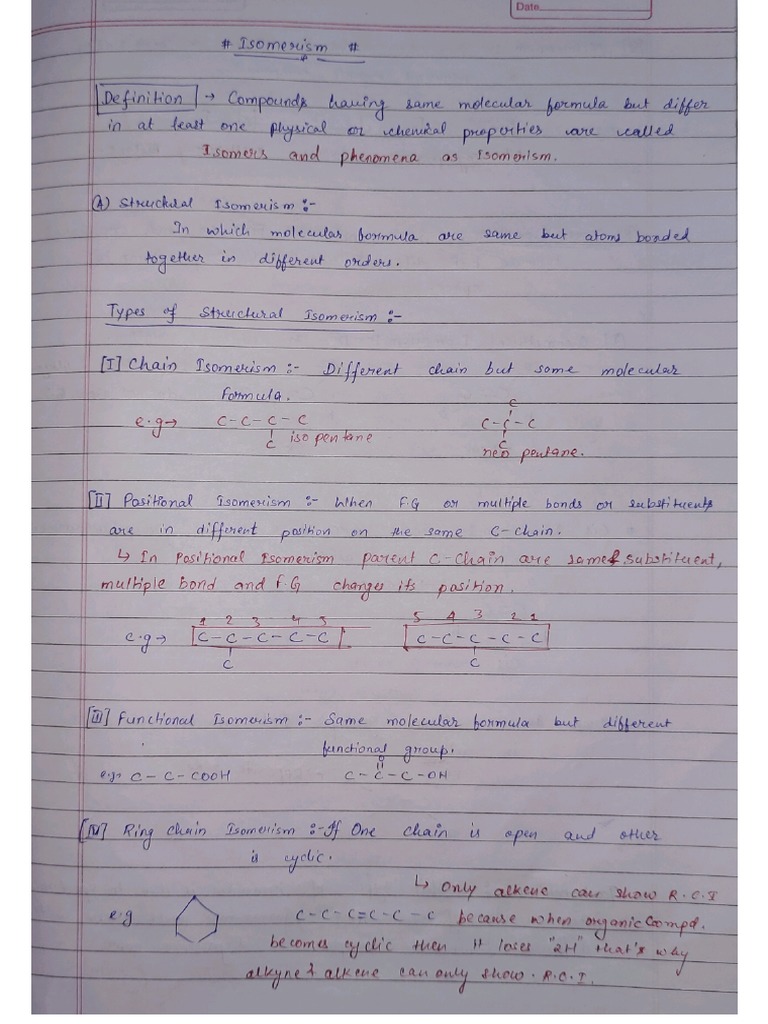 Date
# Isomerism #
Definition → Compounds having same molecular formula but differ
in at least one physical or chemical properties are called
Isomers and phenomena as Isomerism.
(A) Structural Isomerism :-
In which molecular formula are same but atoms bonded
together in different orders.
Types of Structural Isomerism :-
[I] Chain Isomerism :- Different chain but same molecular
formula.
C
e.g → C-C-C-C C-C-C
C isopentane C
neo pentane.
[II] Positional Isomerism :- When F.G or multiple bonds or substituents
are in different position on the same C-chain.
↳ In Positional Isomerism parent C-chain are same & substituent,
multiple bond and F.G changes its position.
1 2 3 4 5 5 4 3 2 1
e.g → C-C-C-C-C C-C-C-C-C
C C
[III] Functional Isomerism :- Same molecular formula but different
functional group.
O
e.g. C-C-COOH C-C-C-OH
[IV] Ring chain Isomerism :- If One chain is open and other
is cyclic.
↳ Only alkene can show R.C.I
e.g C-C-C=C-C-C because when organic Coompd.
becomes cyclic then It loses "2H" that's why
alkyne & alkene can only show. R.C.I.